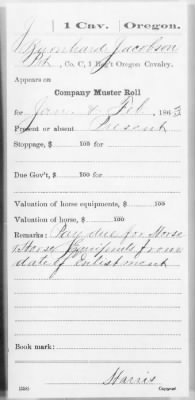 1 Cav. Oregon.
Bernhard Jacobson
Pvt, Co. C, 1 Reg't Oregon Cavalry.
Appears on
Company Muster Roll
for Jan & Feb, 1863
Present or absent Present
Stoppage, $ 100 for
Due Gov't, $ 100 for
Valuation of horse equipments, $ 100
Valuation of horse, $ 100
Remarks: Pay due for Horse
& Horse Equipmts from
date of Enlistment
Book mark:
Harris
(358) Copyist.